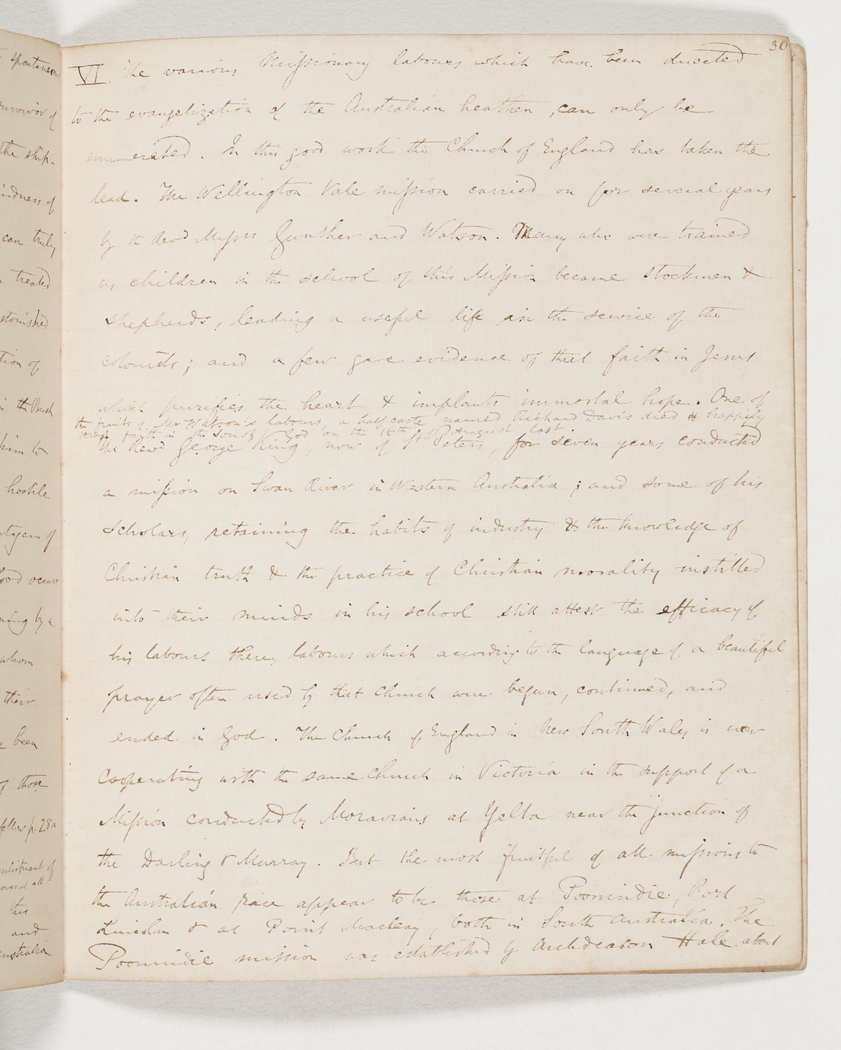 30
VI. The various Missionary labours which have been directed
to the evangelization of the Australian heathen, can only be
enumerated. In this good work the Church of England has taken the
lead. The Wellington Vale mission carried on for several years
by the Revd Messrs Gunther and Watson. Many who were trained
as children in the school of this Mission became stockmen &
shepherds, leading a useful life in the service of the
colonists; and a few gave evidence of their faith in Jesus
which purifies the heart & implants immortal hope. One of
the fruits of Mr Watson's labours, a half caste named Richard Davis died happily
faith in the Son of God on the 16th of August last.
The Revd George King, now of St Peters, for seven years conducted
a mission on Swan River in Western Australia; and some of his
Scholars, retaining the habits of industry & the knowledge of
Christian truth & the practice of Christian morality instilled
into their minds in his school still attest the efficacy of
his labours there, labours which according to the language of a beautiful
prayer often used by that Church were begun, continued, and
ended in God. The Church of England in New South Wales is now
cooperating with the same Church in Victoria in the support of a
Mission conducted by Moravians at Yelta near the junction of
the Darling & Murray. But the most fruitful of all missions to
the Australian race appear to be those at Poonindie, Port
Lincoln & at Point Macleay, both in South Australia. The
Poonindie mission was established by Archdeacon Hale about
spontaneous
survivor of
the ship-
kindness of
can truly
treated
tion of
in the Bush
him to
hostile
of
food
by a
whom
their
been
of those
follow p. 28a
of
all
this
and
Australia